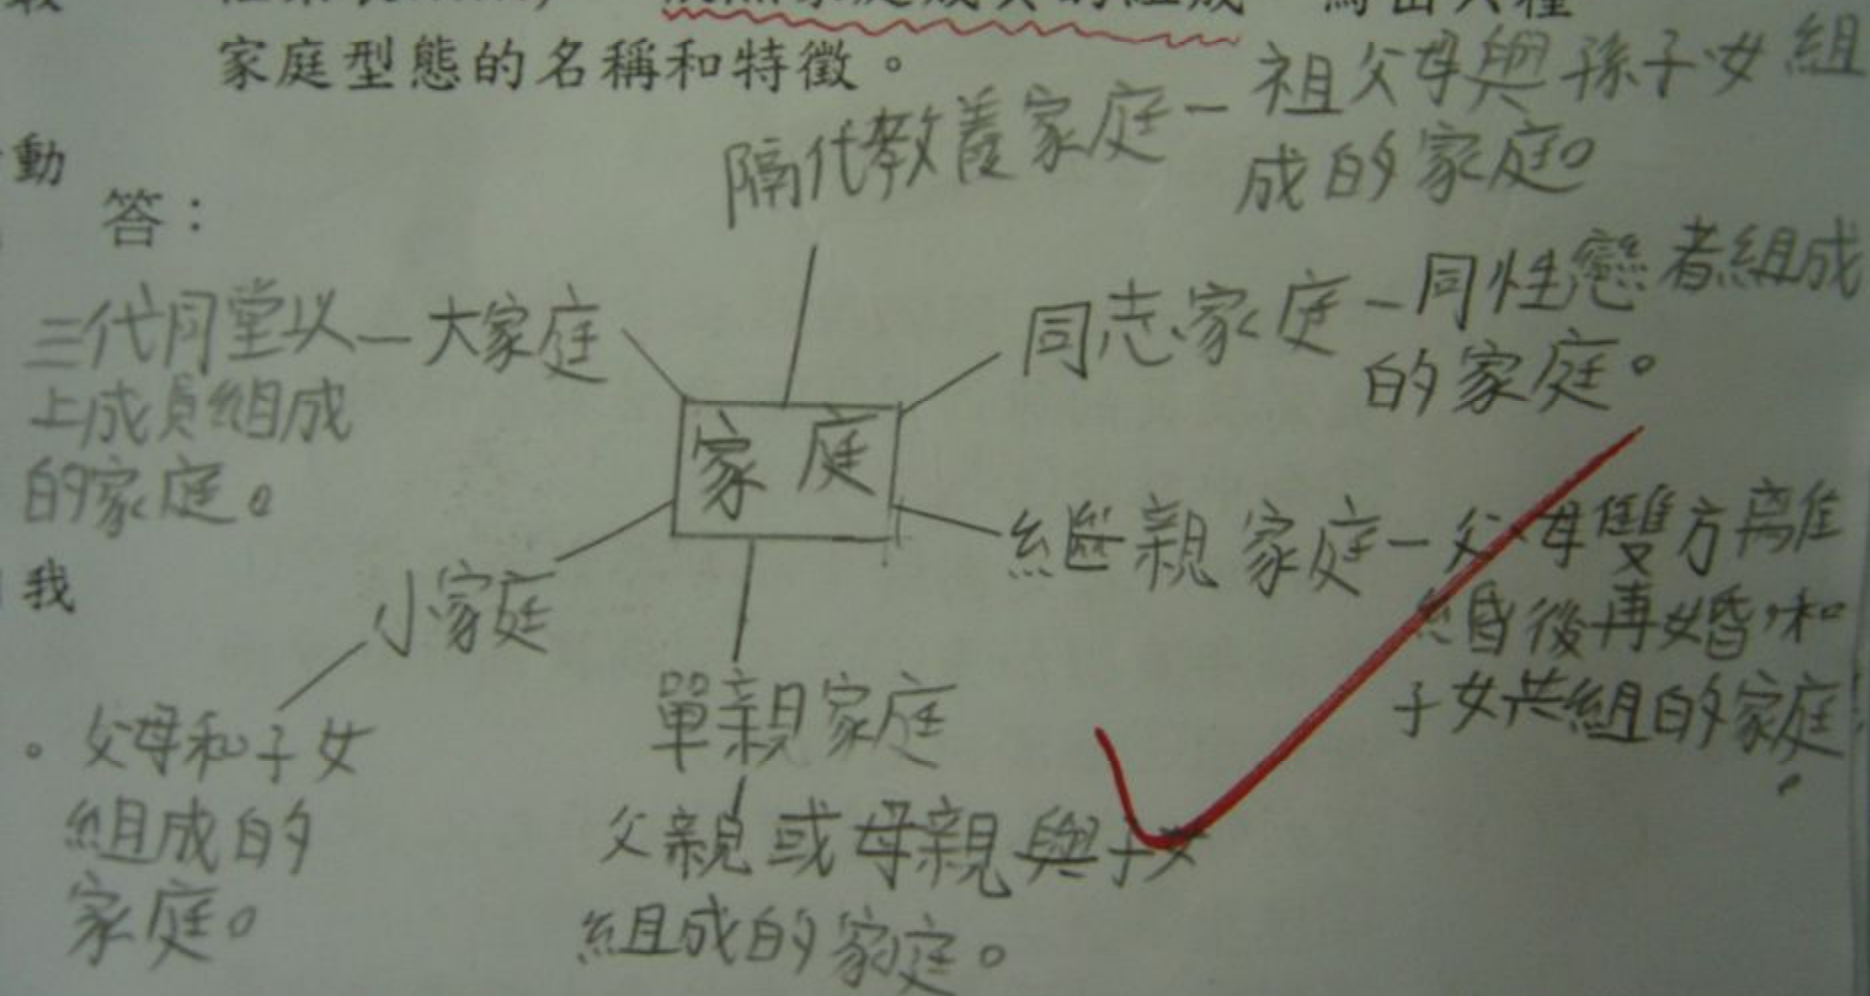 家庭型態的名稱和特徵。
動
答：
隔代教養家庭－祖父母與孫子女組
成的家庭。
同志家庭－同性戀者組成
的家庭。
三代同堂以－大家庭
上成員組成
的家庭。
家庭
繼親家庭－父母雙方離
婚後再婚，和
子女共組的家庭
。
我
小家庭
父母和子女
組成的
家庭。
單親家庭
父親或母親與子女
組成的家庭。